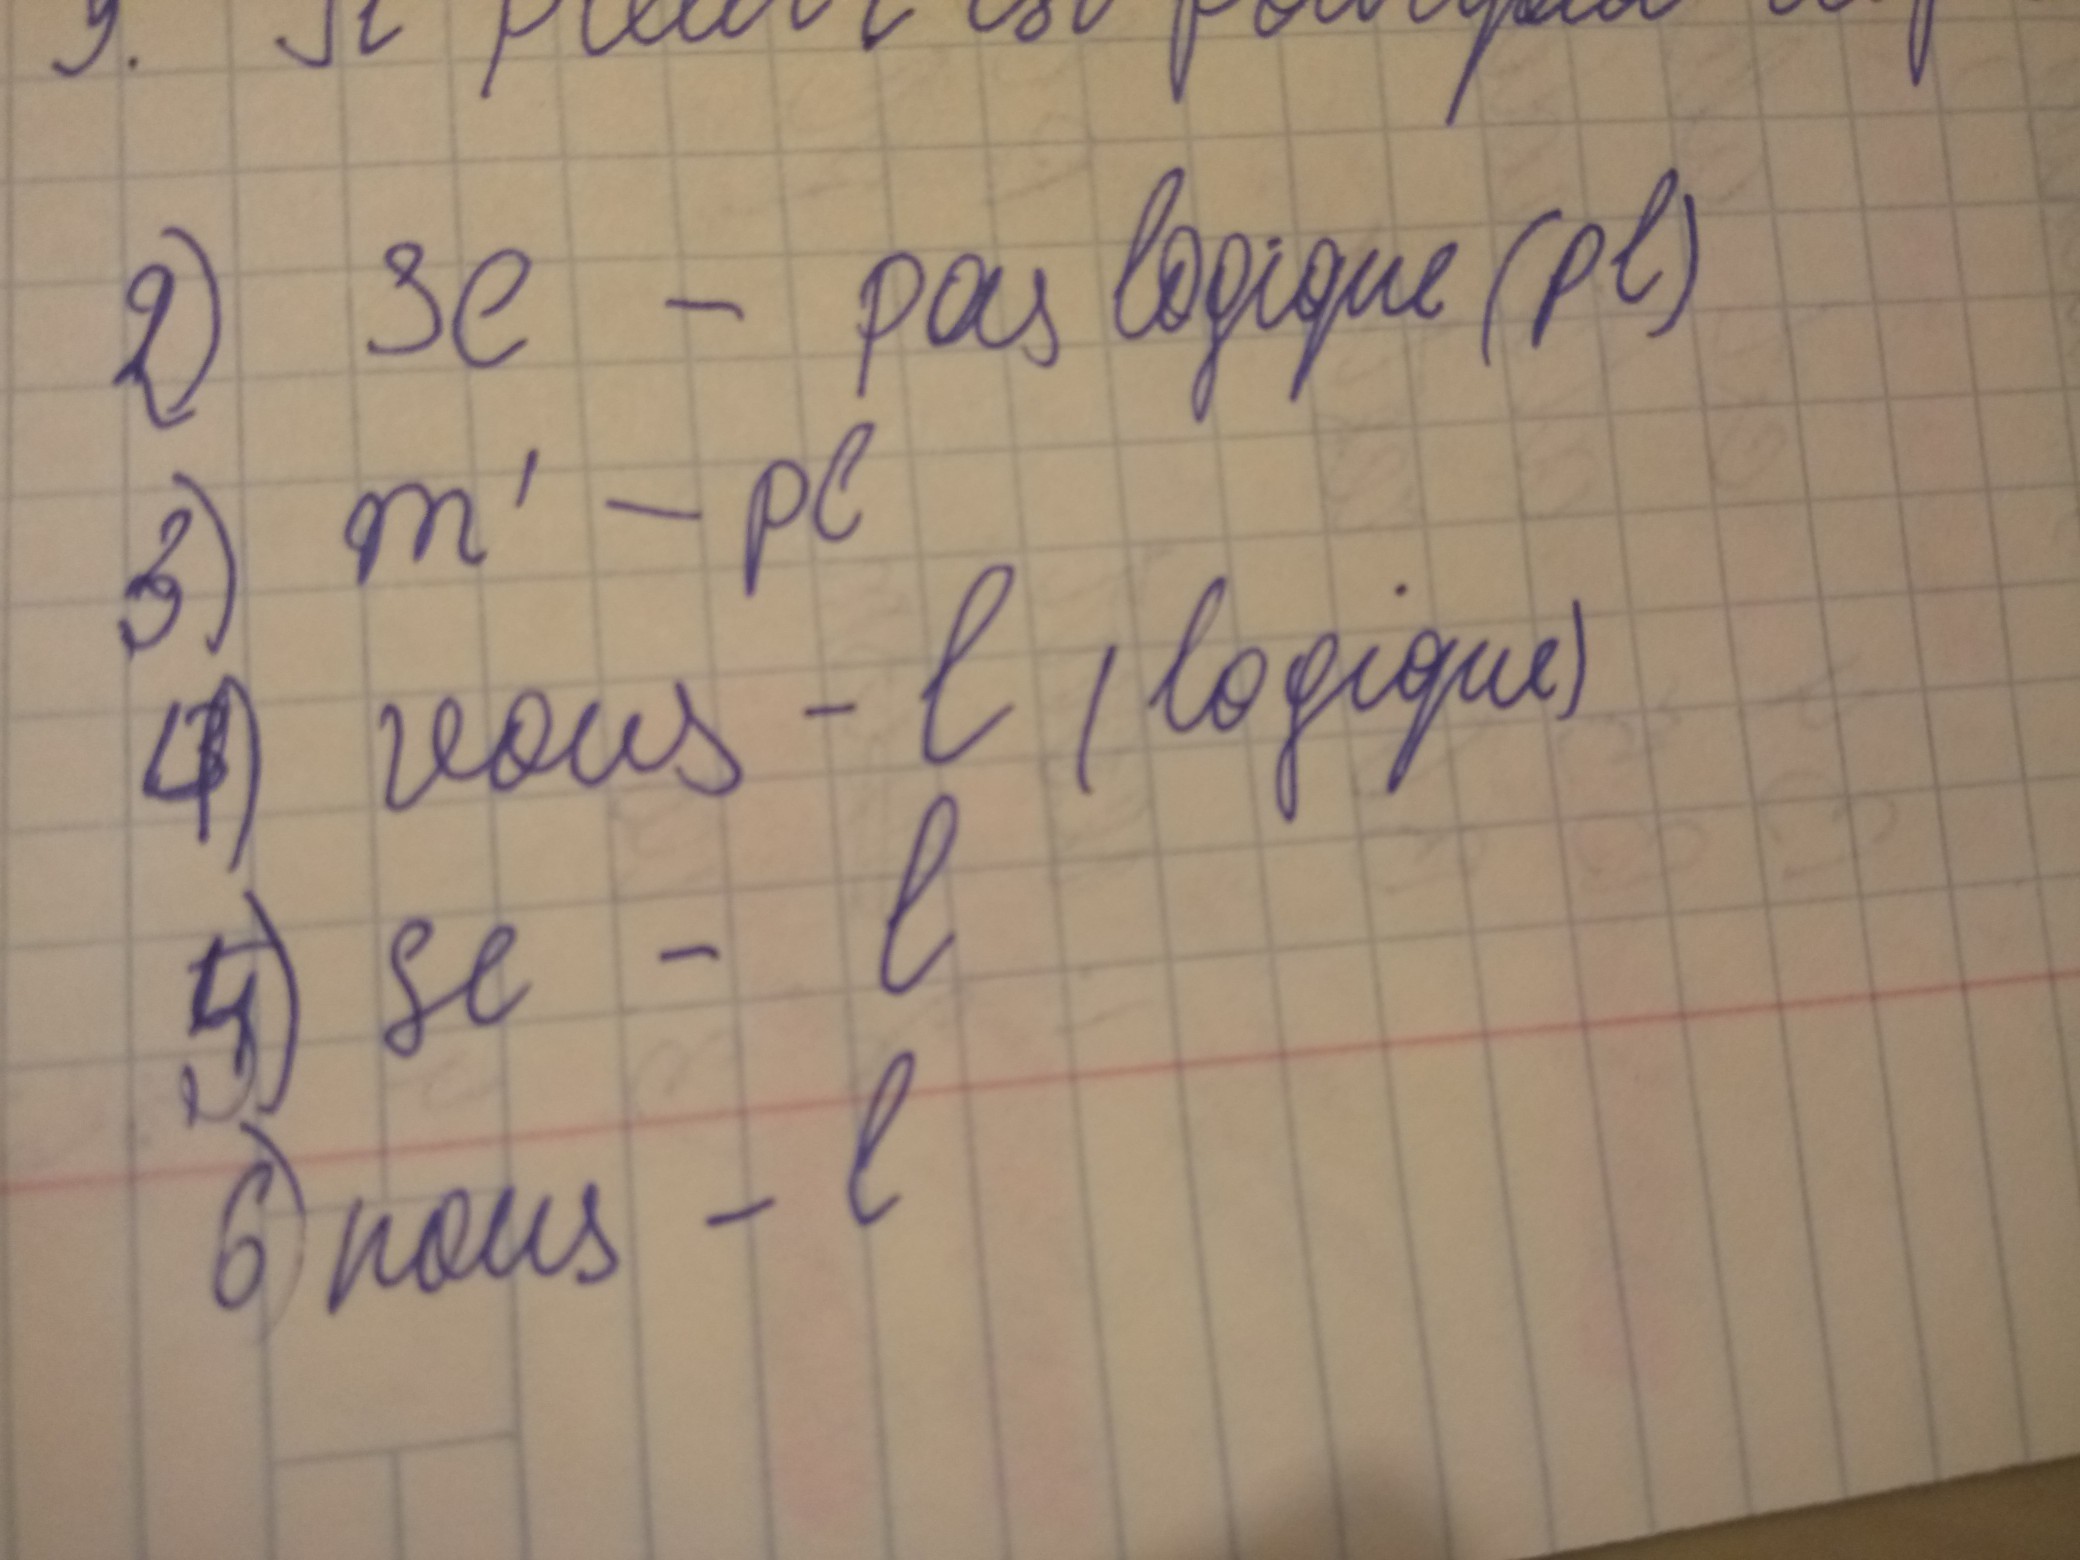 9. Il pleut
2) se - pas logique (pl)
3) m' - pl
4) vous - l (logique)
5) se - l
6) nous - l